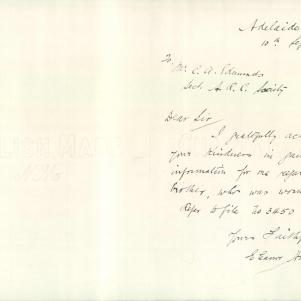 Adelaide
10th Sep
To
Mr. E. A. Edmunds
Sect. A. R. C. Society
Dear Sir
I gratefully ac
your kindness in
information for me
brother, who was woun
Refer to file No 3450
Yours Faith